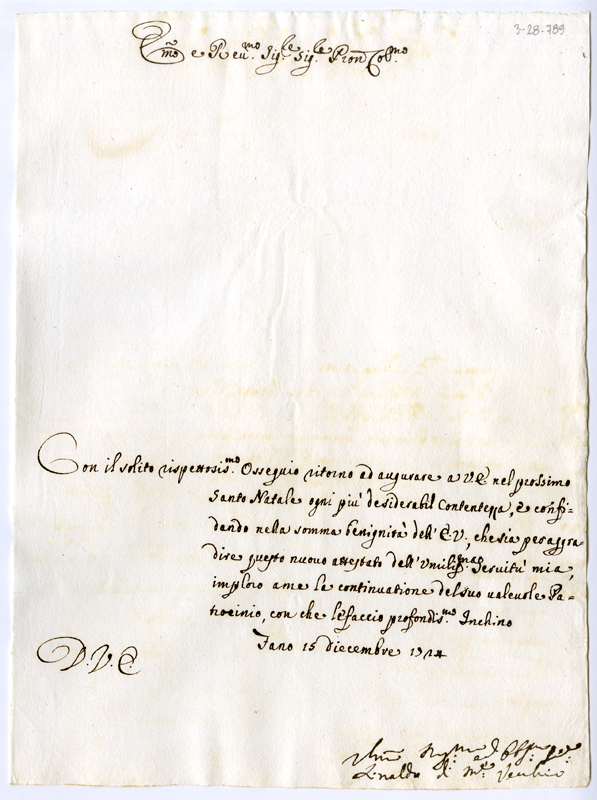 3-28-789
Em̃o e Reu.mo Sig.re Sig.re Pron Col.mo
Con il solito rispettosis.mo Ossequio ritorno ad augurare a V.E. nel prossimo
Santo Natale ogni più desiderabil Contentezza, e confi=
dando nella somma benignità dell'E.V., che sia per aggra
dire questo nuovo attestato dell'Vmiliss.ma Seruitù mia,
imploro a me la continuatione del suo valeuole Pa=
trocinio, con che le faccio profondis.mo Inchino
Fano 15 diecembre 1724
D.V.E.
Rinaldo di Mte Vecchio